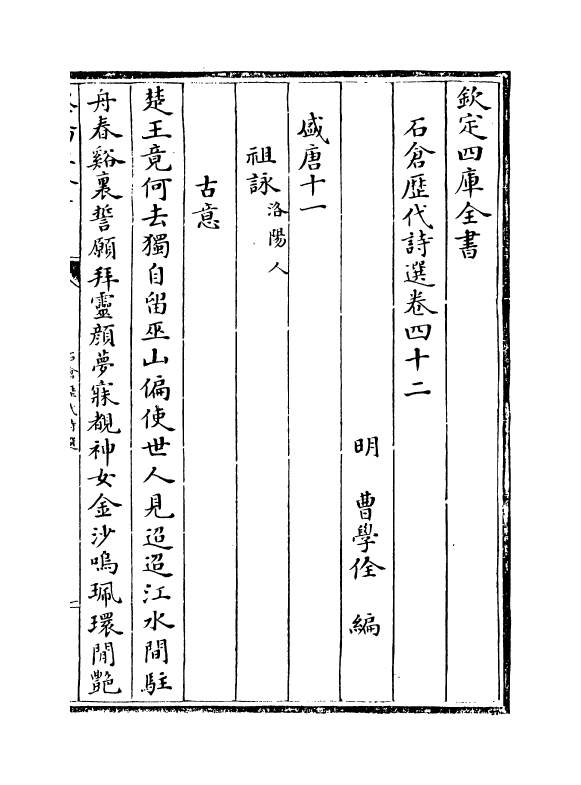 欽定四庫全書
石倉歷代詩選卷四十二
明 曹學佺 編
盛唐十一
祖詠洛陽人
古意
楚王竟何去獨自留巫山偏使世人見迢迢江水間駐
舟春谿裏誓願拜靈顏夢寐覩神女金沙鳴珮環閒艷
石倉歷代詩選